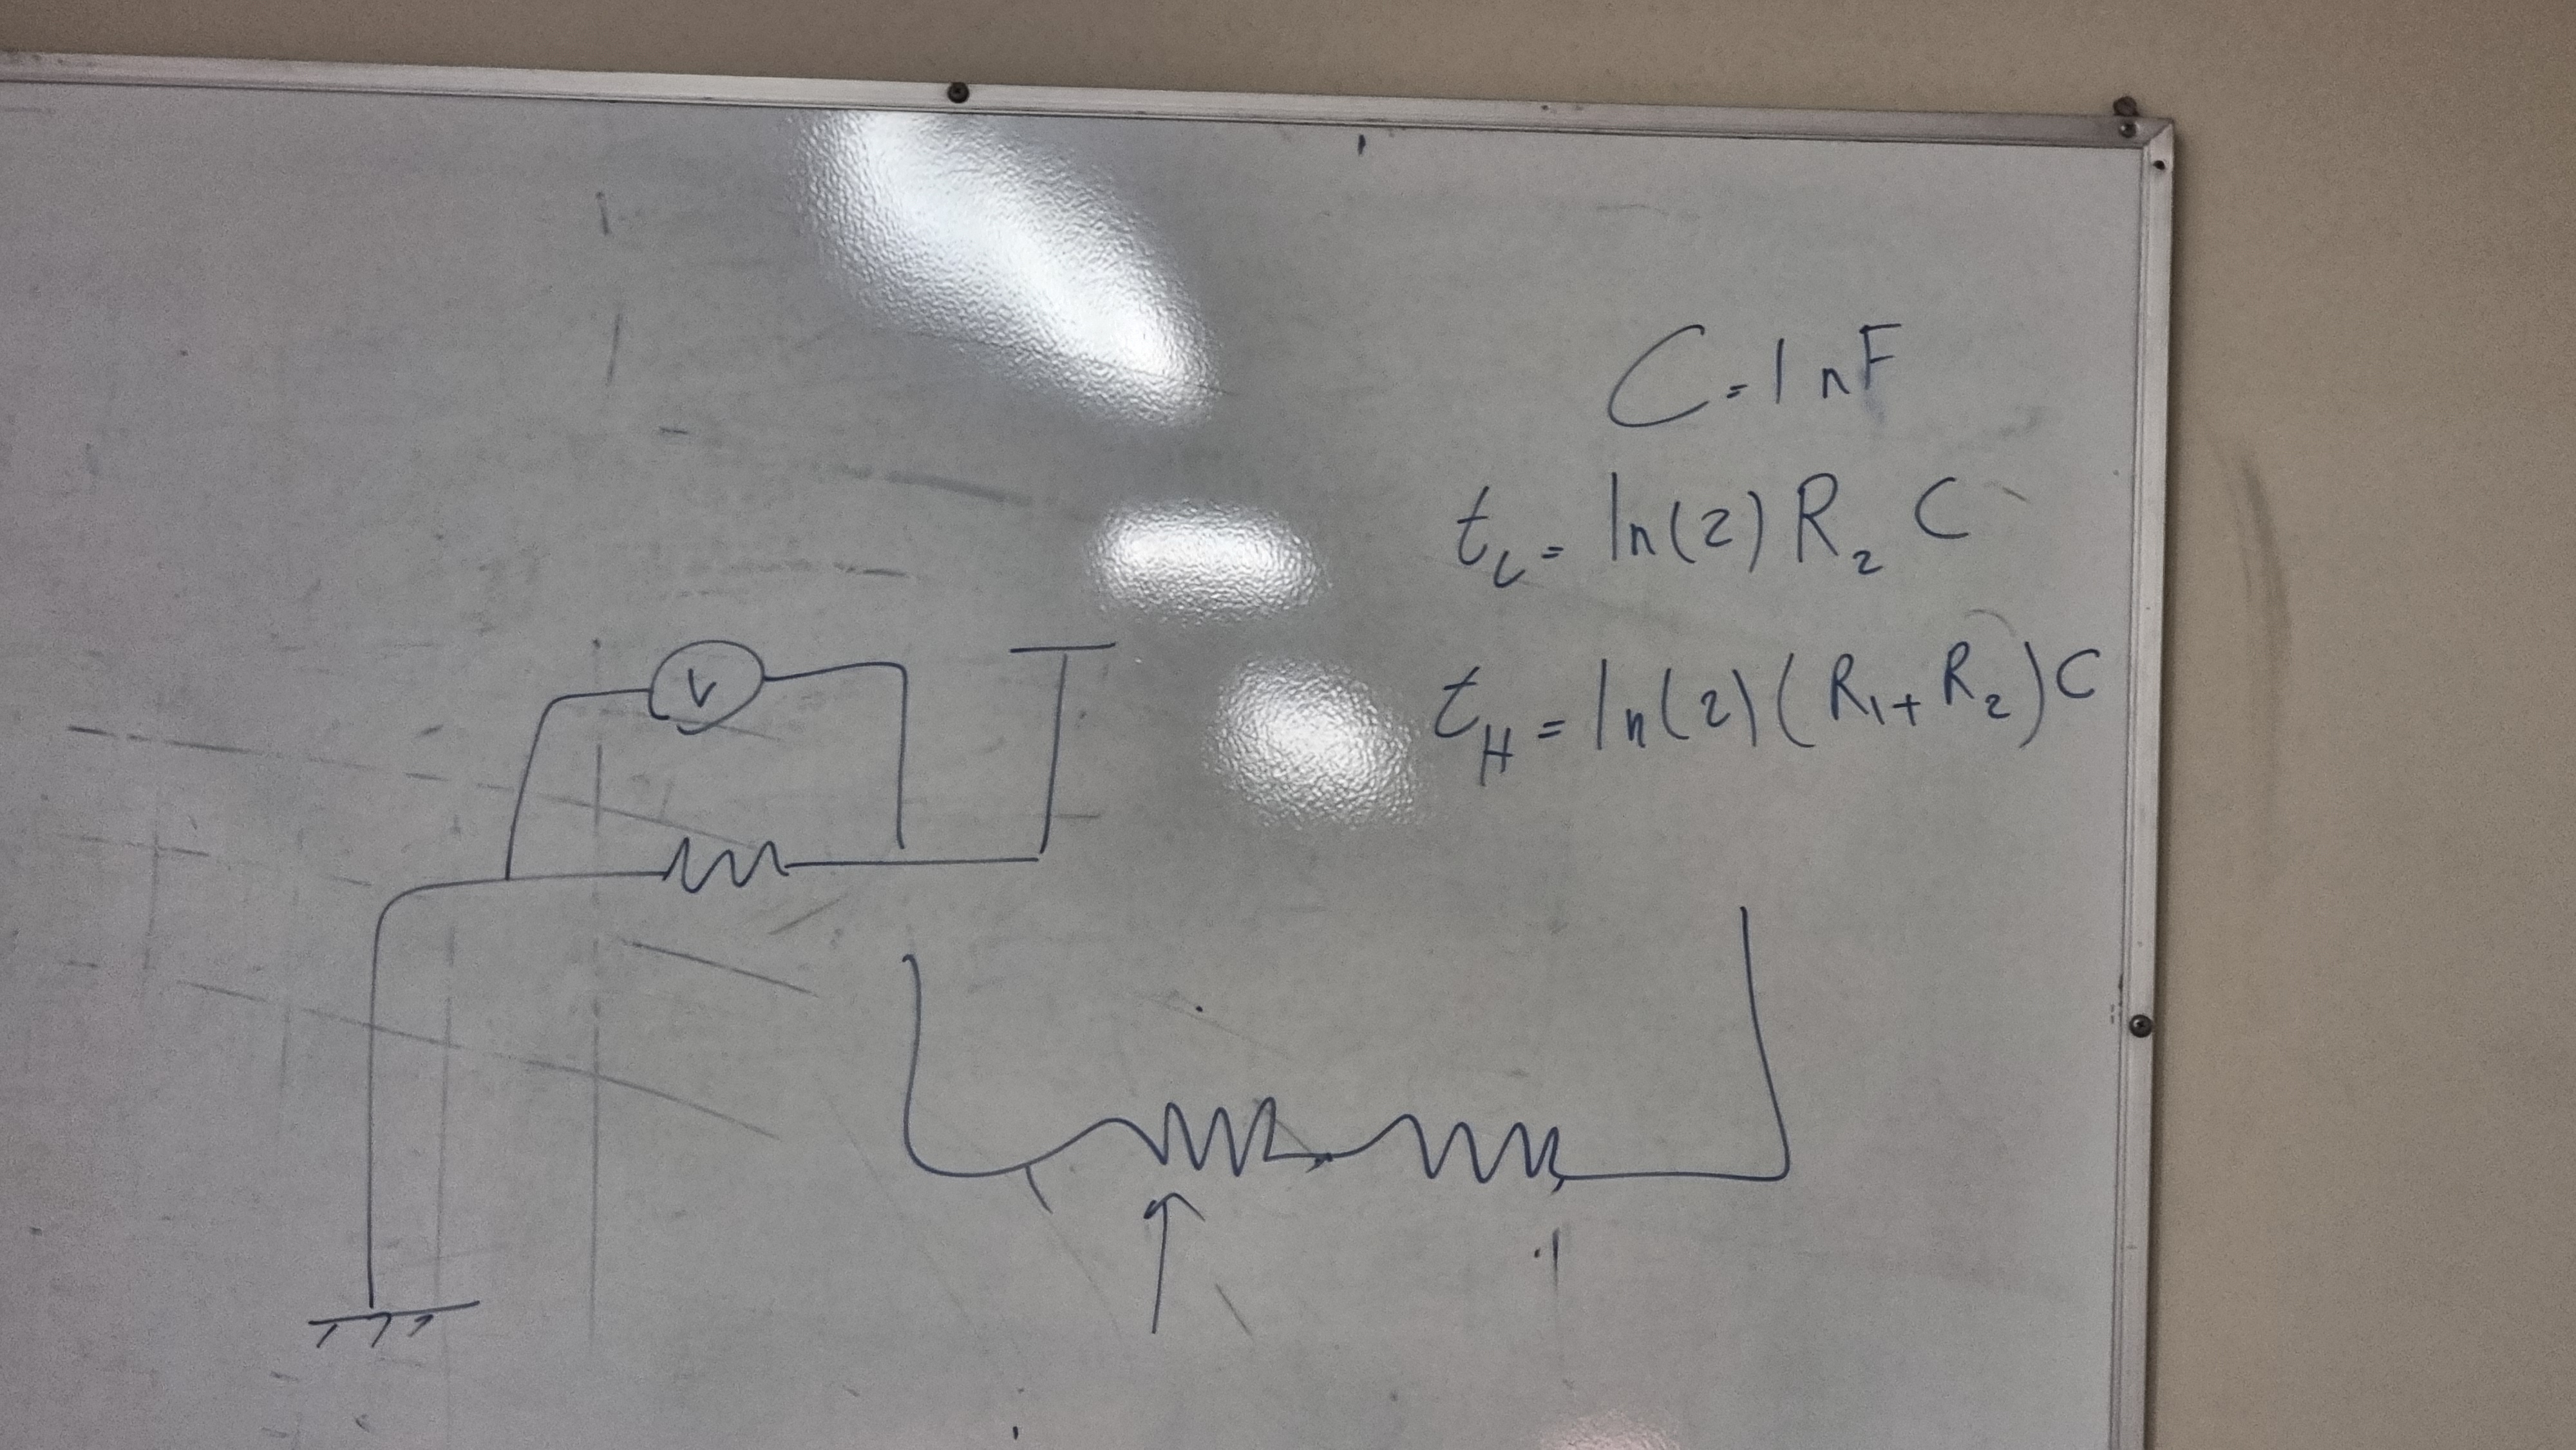 C=1nF
t_L=ln(2)R₂C
t_H=ln(2)(R₁+R₂)C
V